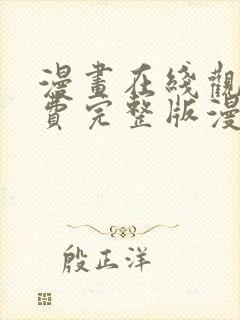 漫畫在綫觀
費完整版漫
殷正洋